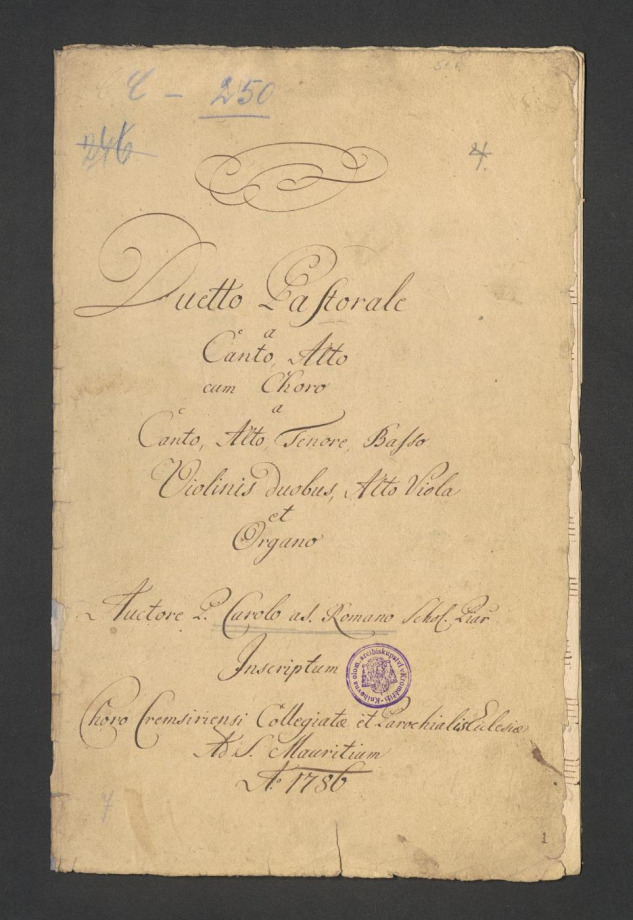 C - 250
246
4.
Duetto Pastorale
a
Canto, Alto
cum Choro
a
Canto, Alto, Tenore, Basso
Violinis duobus, Alto Viola
et
Organo
Auctore P. Carolo a S. Romano Schol. Piar
Inscriptum
Choro Cremsiriensi Collegiatæ et Parochialis Eclesiæ
Ad S. Mauritium
Aº 1786
1